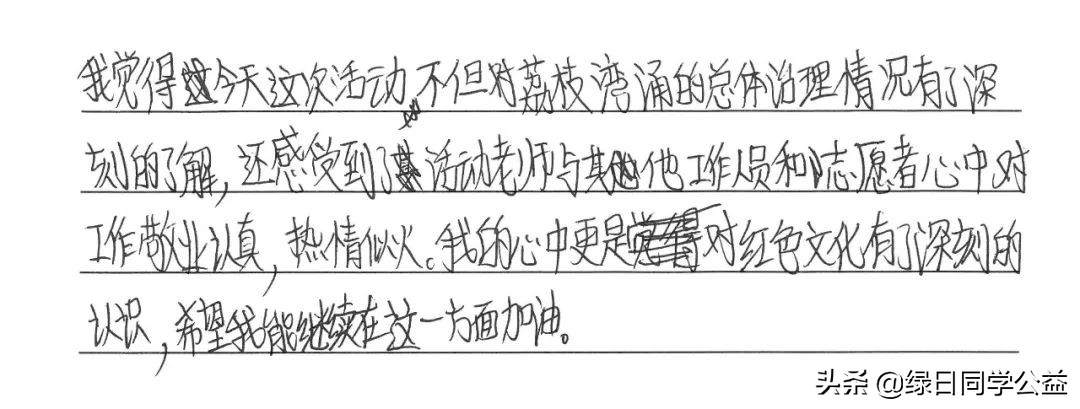 我觉得今天这次活动,不但对荔枝湾涌的总体治理情况有了深
刻的了解,还感受到了活动老师与其他工作人员和志愿者心中对
工作敬业认真,热情似火。我的心中更是对红色文化有了深刻的
认识,希望我能继续在这一方面加油。
头条 @绿日同学公益